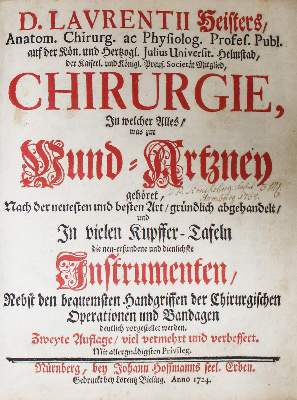 D. LAVRENTII Heisters,
Anatom. Chirurg. ac Physiolog. Profes. Publ.
auf der Kön. und Hertzogl. Julius Universit. Helmstad,
der Käiserl. und Königl. Preuß. Societät Mitglied,
CHIRURGIE,
In welcher Alles,
was zur
Wund-Artzney
gehöret,
Nach der neuesten und besten Art, gründlich abgehandelt,
und
In vielen Kupffer-Tafeln
die neu-erfundene und dienlichste
Instrumenten,
Nebst den bequemsten Handgriffen der Chirurgischen
Operationen und Bandagen
deutlich vorgestellet werden.
Zweyte Auflage, viel vermehrt und verbessert.
Mit allergnädigsten Privileg.
Nürnberg, bey Johann Hoffmanns seel. Erben.
Gedruckt bey Lorenz Bieling. Anno 1724.